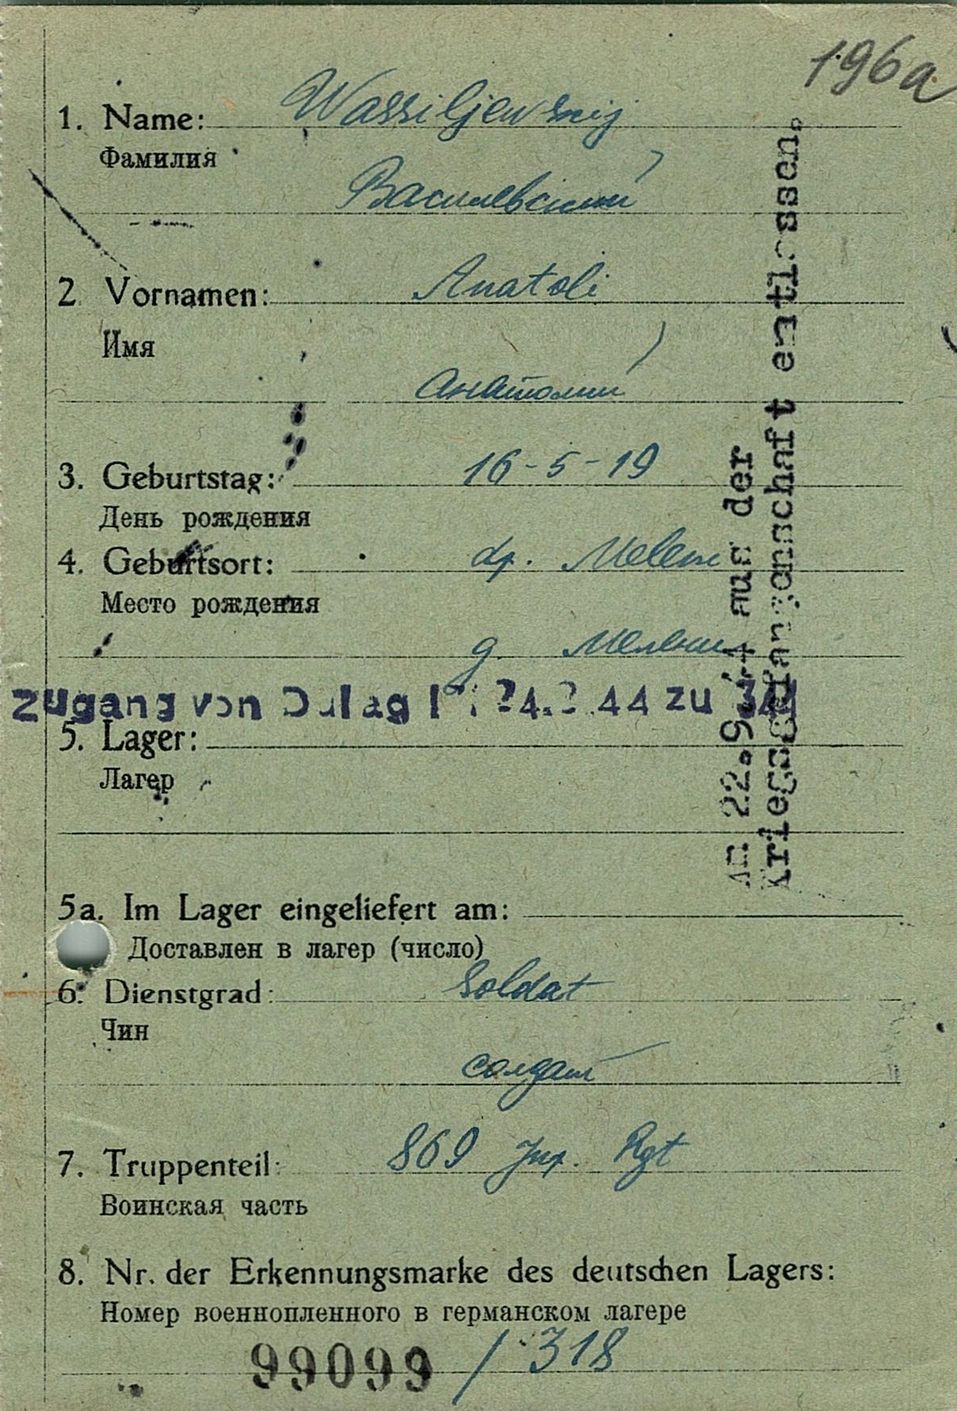 196a
1. Name: Wassiljewskij
Фамилия
Василевский
2. Vornamen: Anatoli
Имя
Анатолий
3. Geburtstag: 16-5-19
День рождения
4. Geburtsort: Meleni
Место рождения
д. Мелени
Zugang von Dulag 44 zu
5. Lager:
Лагер
5a. Im Lager eingeliefert am:
Доставлен в лагер (число)
6. Dienstgrad: Soldat
Чин
солдат
7. Truppenteil: 869 Inf. Rgt
Воинская часть
8. Nr. der Erkennungsmarke des deutschen Lagers:
Номер военнопленного в германском лагере
99099 / 318
Am 22.9.44 aus der
Kriegsgefangenschaft entlassen.